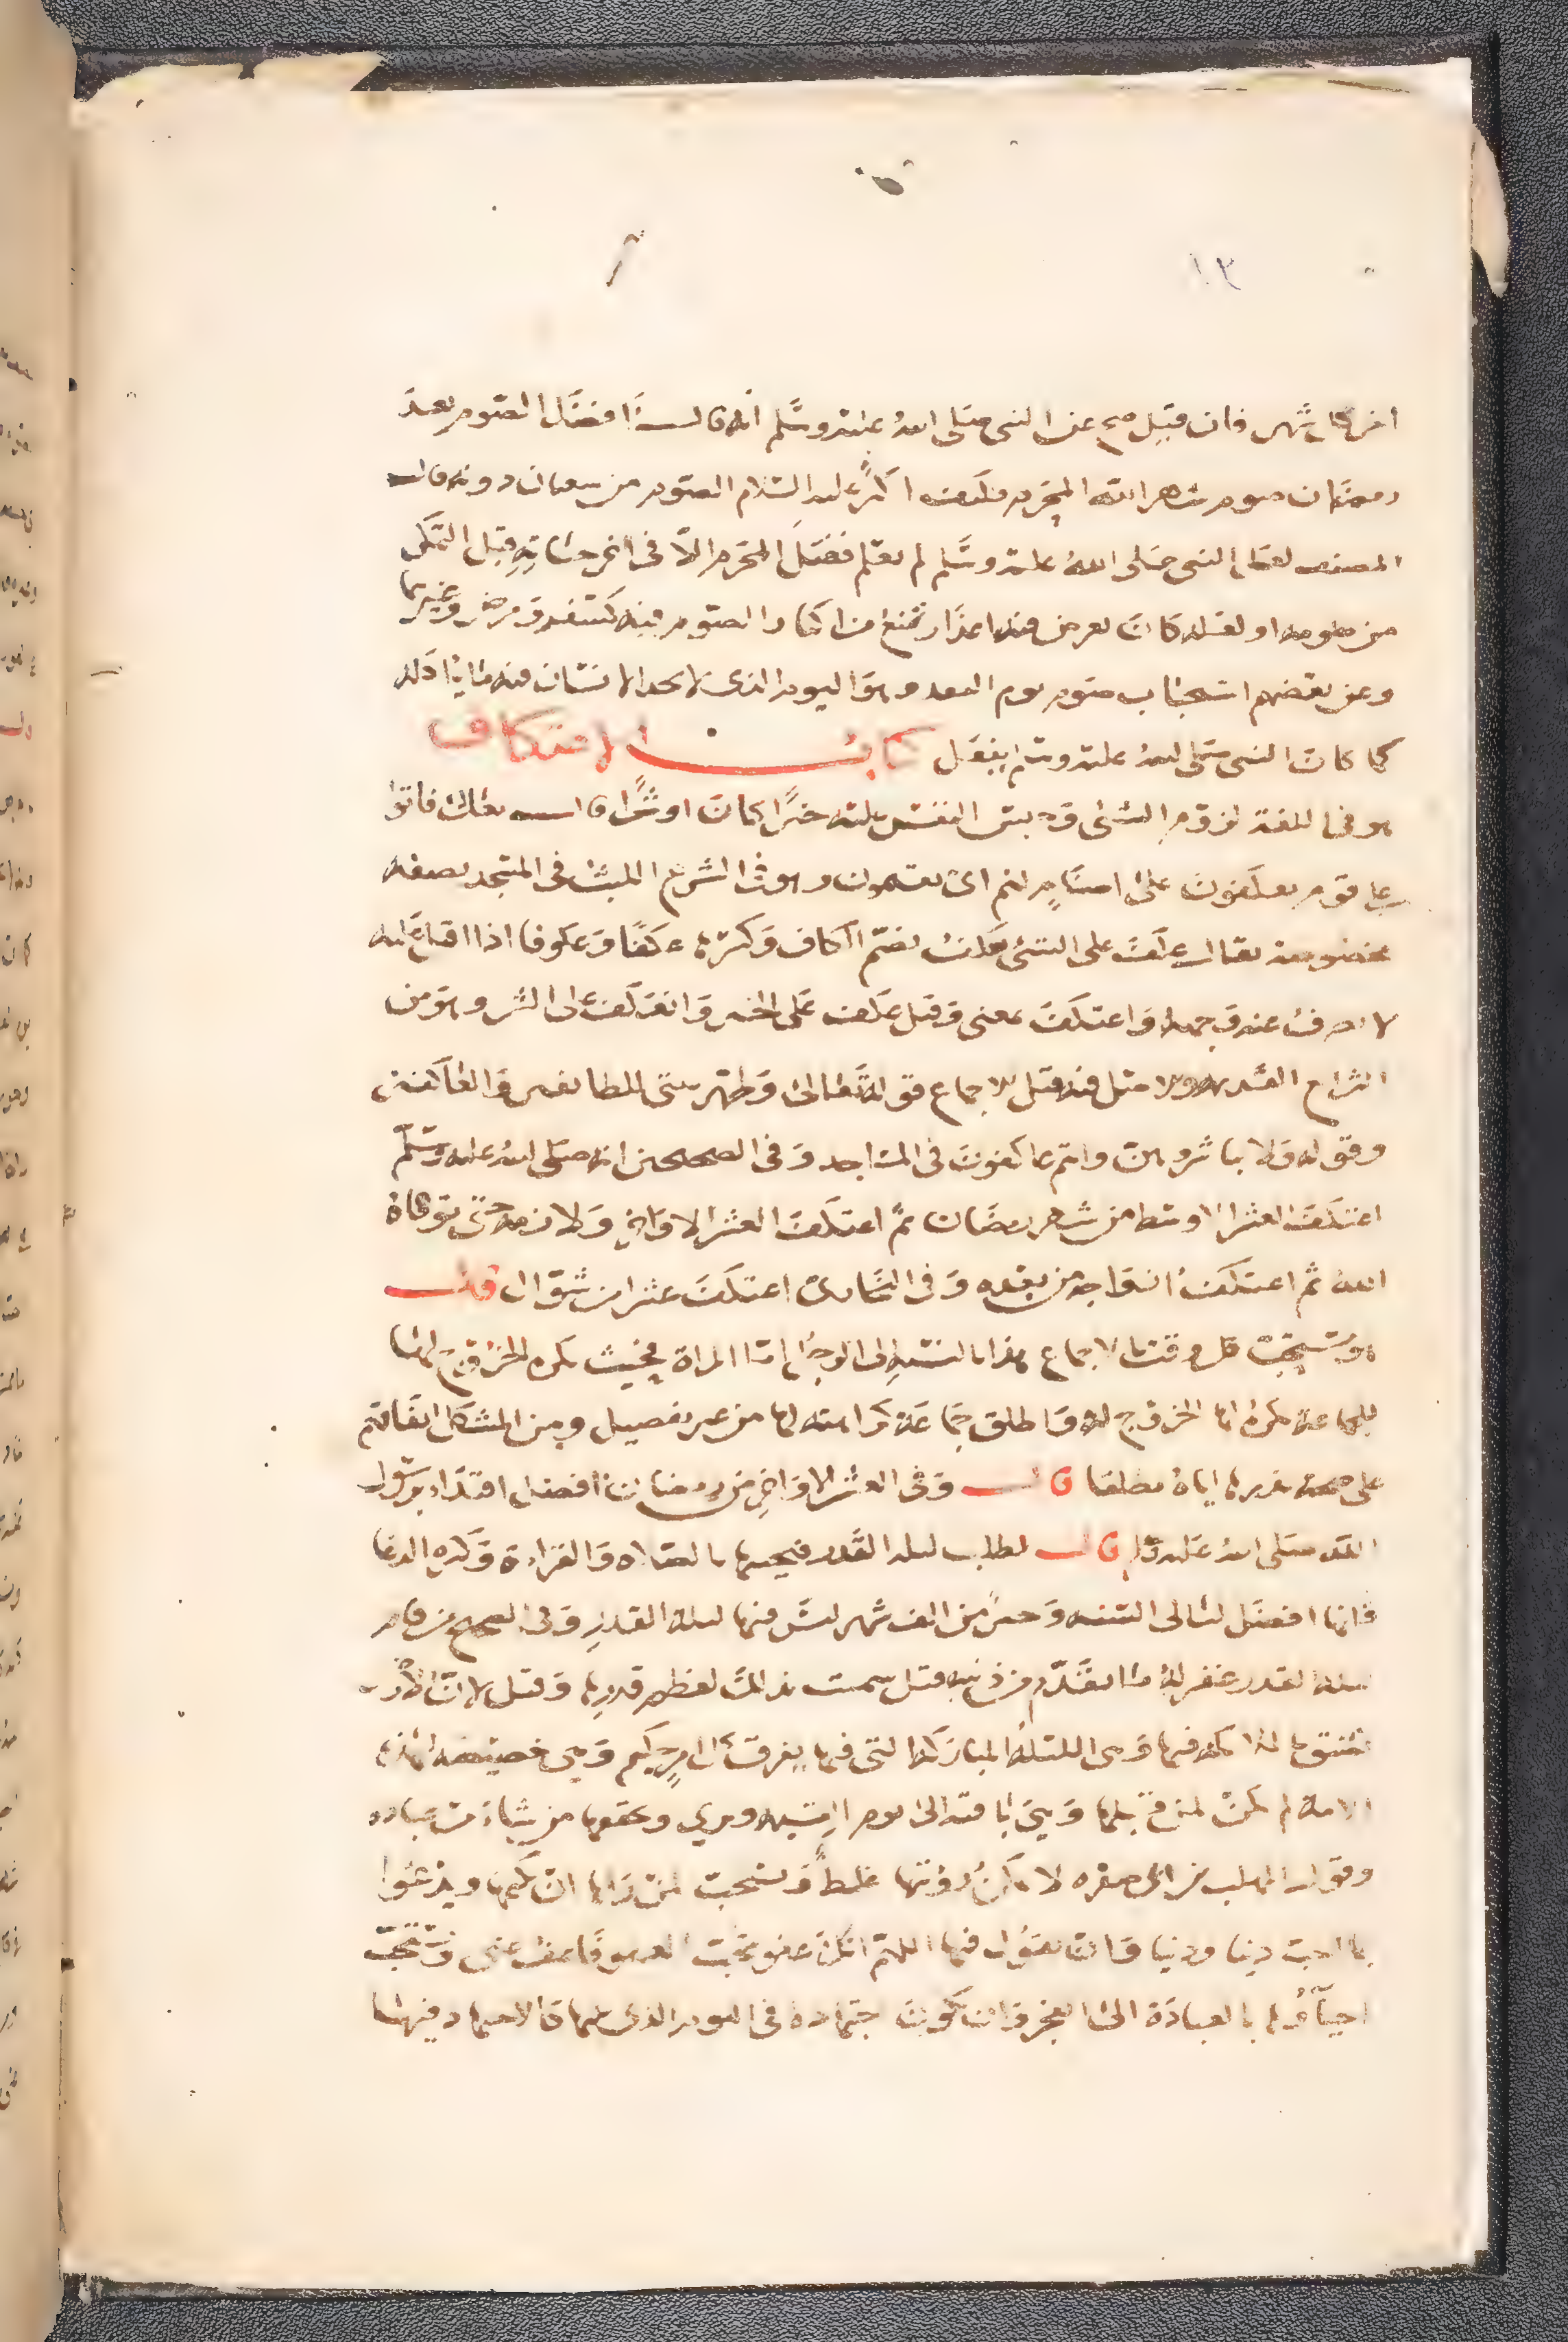 ١٣
اخر كل شهر فان قيل صح عن النبى صلى الله عليه وسلم انه قال افضل الصوم بعد
رمضان صوم شهر الله المحرم فكيف اكثر عليه السلام الصوم من شعبان دونه قال
المصنف لعل النبى صلى الله عليه وسلم لم يعلم فضل المحرم الا فى اخر حياته قبل التمكن
من صومه او لعله كان يعرض فيه اعذار تمنع من اكثار الصوم فيه كسفر ومرض وغيرهما
وعن بعضهم استحباب صوم يوم وهو اليوم الذى لا يجد الانسان فيه ما ياكله
كما كان النبى صلى الله عليه وسلم يفعل كتاب الاعتكاف
هو فى اللغة لزوم الشئ وحبس النفس عليه خيرا كان او شرا قال تعالى فاتوا
على قوم يعكفون على اصنام لهم اى يقيمون وهو فى الشرع اللبث فى المسجد بصفة
مخصوصة يقال عكف على الشئ يعكف بضم الكاف وكسرها عكفا وعكوفا اذا اقام عليه
لا يصرف عنه وجهه واعتكف بمعنى وقيل عكف على الخير وانعكف على الشر وهو من
الشرائع القديمة والاصل فيه قبل الاجماع قوله تعالى وطهر بيتى للطائفين والعاكفين
وقوله ولا تباشروهن وانتم عاكفون فى المساجد وفى الصحيحين انه صلى الله عليه وسلم
اعتكف العشر الاوسط من شهر رمضان ثم اعتكف العشر الاواخر ولازمه حتى توفاه
الله ثم اعتكف ازواجه من بعده وفى البخارى اعتكف عشرا من شوال قال
هو مستحب كل وقت بالاجماع هذا بالنسبة الى الرجل اما المراة فحيث يكره الخروج لها
للجماعة يكره لها الخروج له واطلق جماعة كراهته لها من غير تفصيل ومن المشكل اتفاقهم
على صحة نذرها اياه مطلقا قال وفى العشر الاواخر من رمضان افضل اقتداء برسول
الله صلى الله عليه وسلم قال لطلب ليلة القدر فيحييها بالصلاة والقراءة وكثرة الدعا
فانها افضل ليالى السنة وخير من الف شهر ليس فيها ليلة القدر وفى الصحيح من قام
ليلة القدر غفر له ما تقدم من ذنبه قيل سميت بذلك لعظم قدرها وقيل لان الارض
تضيق بالملائكة فيها وهى الليلة المباركة التى فيها يفرق كل امر حكيم وهى خصيصة لهذه
الامة لم تكن لمن قبلها وهى باقية الى يوم القيمة وترى وتحققها من يشاء من عباده
وقول المهلب بن ابى صفرة لا يمكن رؤيتها غلط ويستحب لمن راها ان يكتمها ويدعوا
بما احب دينا ودنيا وان يقول فيها اللهم انك عفو تحب العفو فاعف عنى ويستحب
احياؤها بالعبادة الى الفجر وان يكون اجتهاده فى اليوم الذى يليها كالاجتهاد فيها